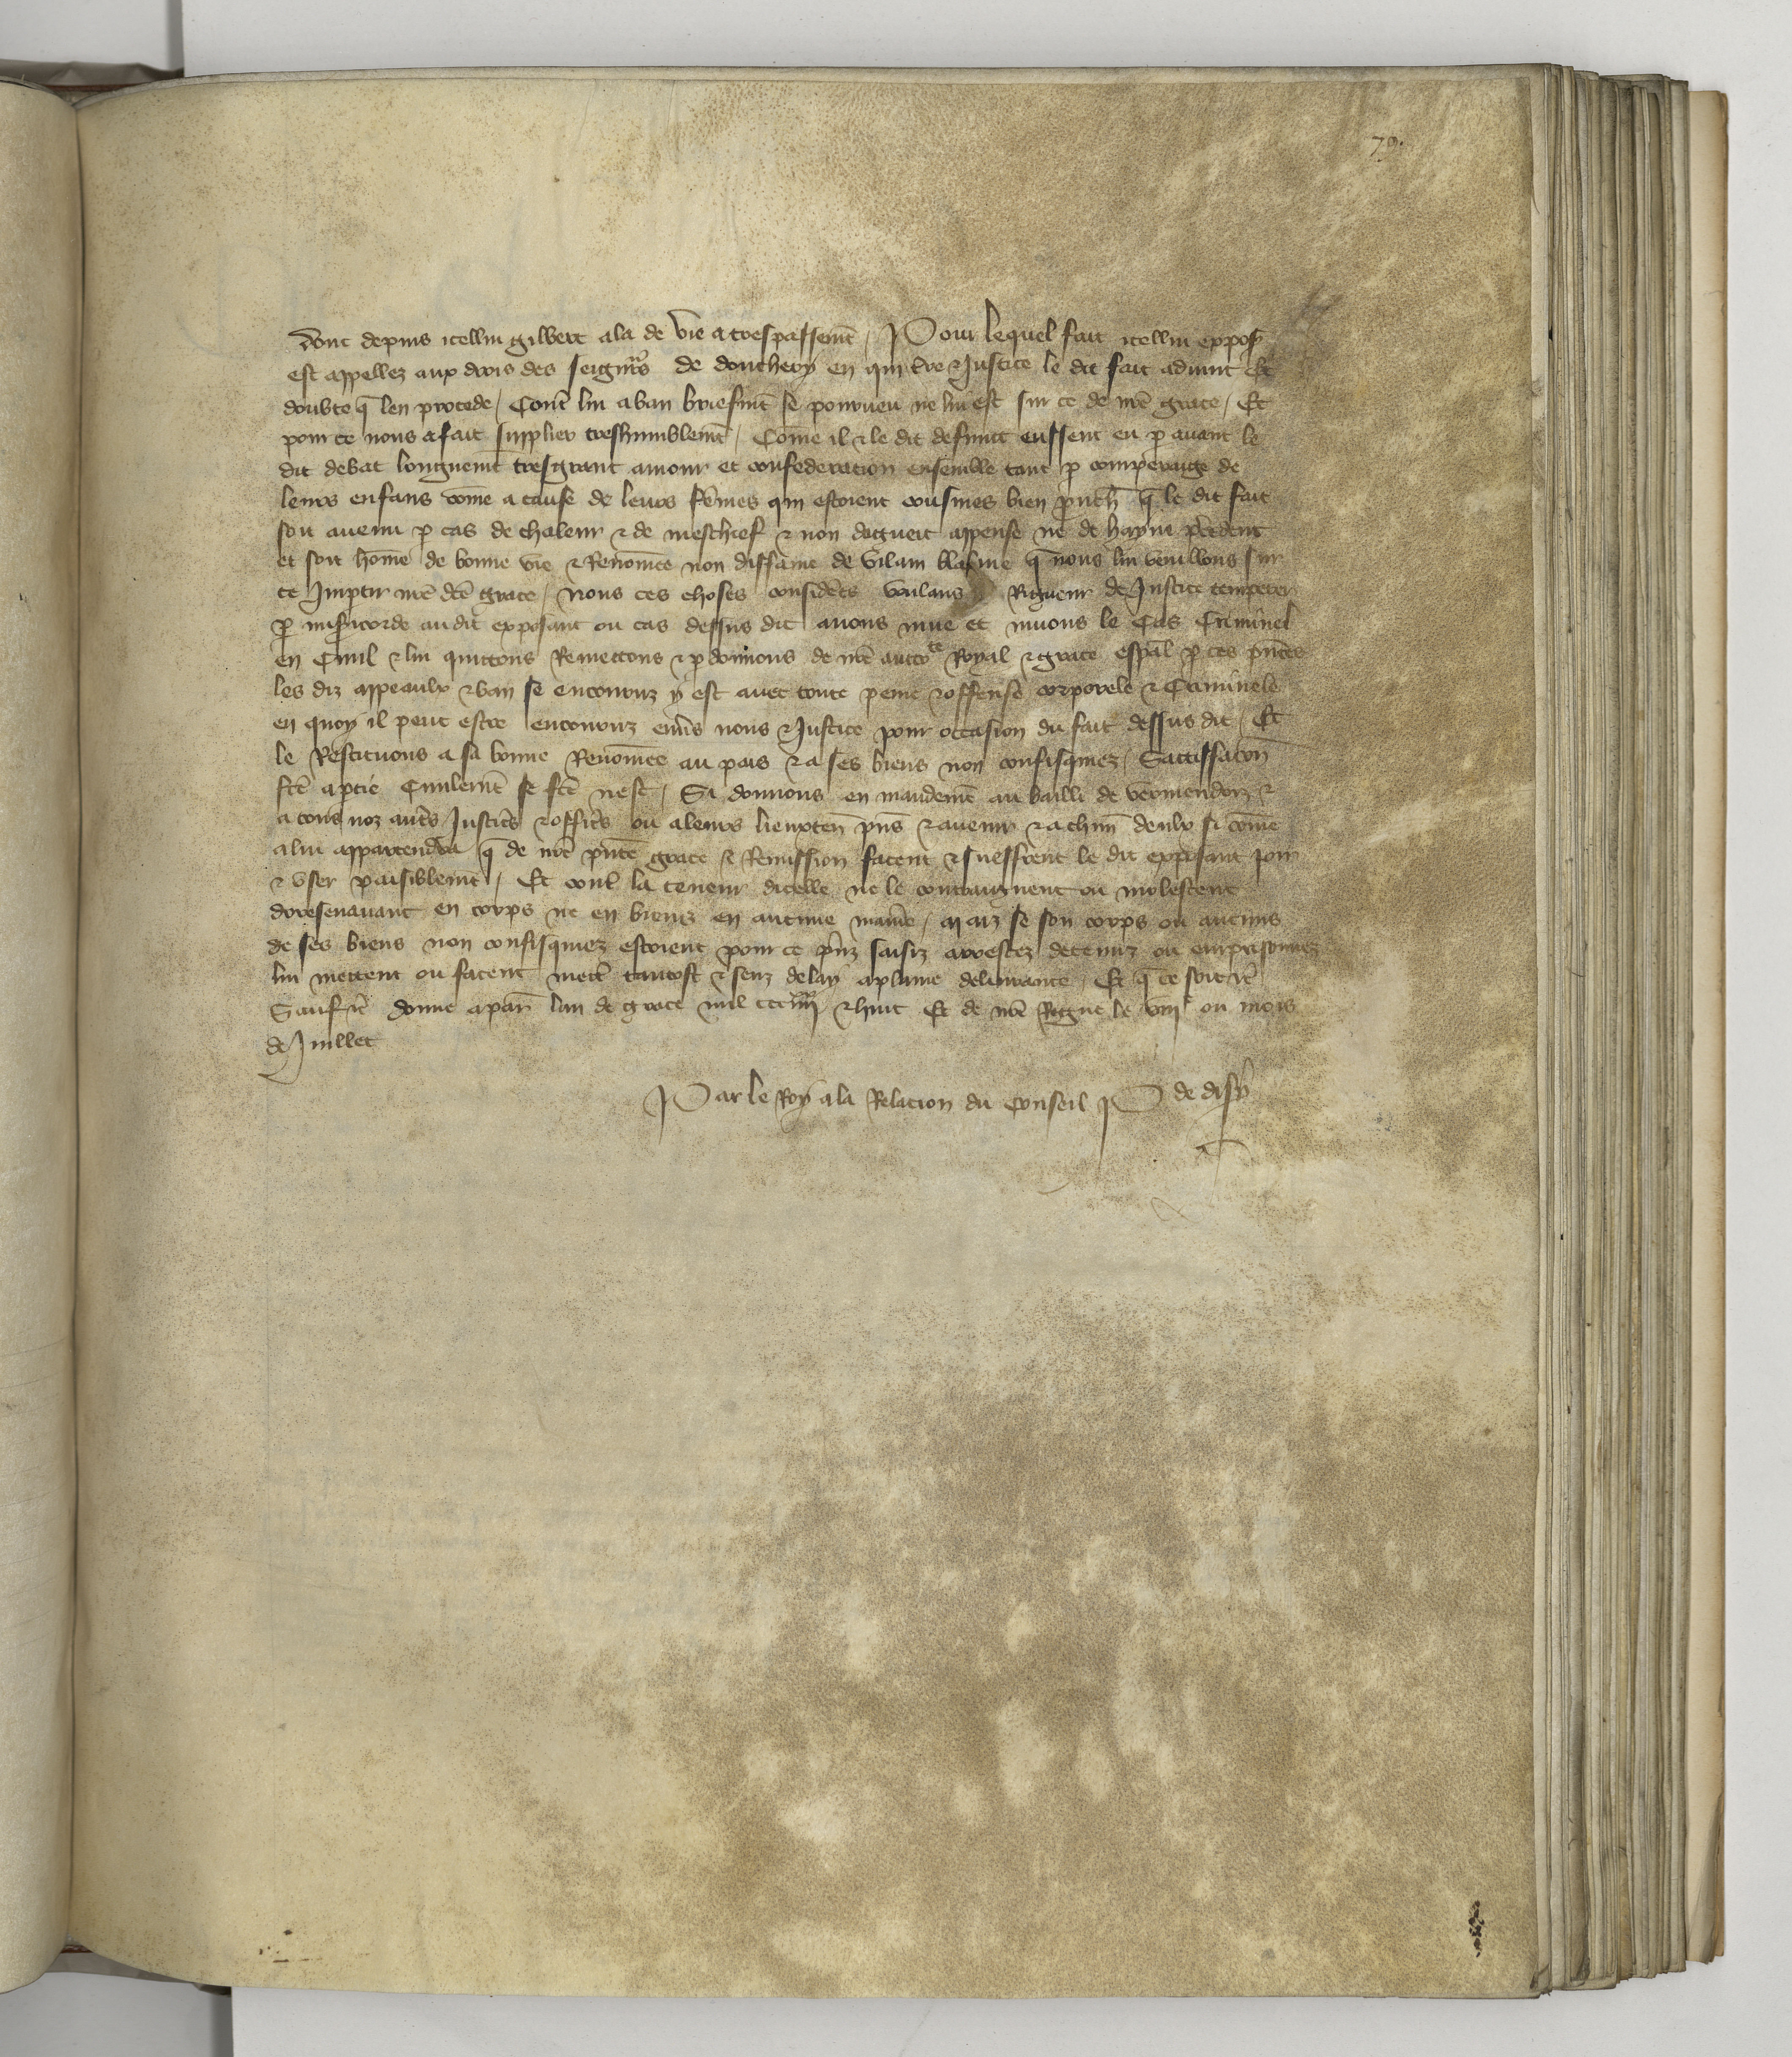 79.
dont depuis icellui gilbert ala de vie a trespassemt / Pour lequel fait icellui expost
est appellez aux drois des seignrs de donchery en qui tre & Justice le dit fait advint Et
doubte q̄ len procede / Contr̄ lui a ban briefmt se pourveu ne lui est sur ce de nr̄e grace / Et
pour ce nous a fait supplier treshumblemt / Cōme il & le dit defunct eussent eu p avant le
dit debat longuemt tresgrant amour et confederation ensemble tant p comperaige de
leurs enfans cōme a cause de leurs fēmes qui estoient cousines bien prouch̄ q̄ le dit fait
soit avenu p cas de chaleur & de meschief & non daguait appense ne de hayne p̄cedent
et soit hōme de bonne vie & Renōmee non diffame de vilain blasme q̄ nous lui vueillons sur
ce Impartir nr̄e dc̄e grace / Nous ces choses considerēs voulans Rigueur de Justice temperer
p misericorde audit exposant ou cas dessus dit avons mue et muons le Cas Criminel
en Civil & lui quittons Remettons & pdonnons de nr̄e aucto^te Royal & grace esp̄al p ces p̄ntes
les diz appeaulx & ban se encouruz y est avec toute peine & offense corporele & Criminele
en quoy il peut estre encouruz env̄s nous & Justice pour occasion du fait dessus dit / Et
le Restituons a sa bonne Renōmee au pais & a ses biens non confisquiez / Sattiffac̄on
fc̄e a ptie Civilemt se fc̄e nest / Si donnons en mandemt au bailli de vermendoiz &
a tous noz autrs Justicrs & officrs ou a leurs lieuxten̄ p̄ns & avenir & a ch̄un deulx si cōme
a lui appartendra q̄ de nr̄e p̄nte grace & Remission facent & sueffrent le dit exposant joir
& user paisiblemt / Et contr̄ la teneur dicelle ne le contraingnent ou molestent
doresenavant en corps ne en biens en aucune maniēe / Maiz se son corps ou aucuns
de ses biens non confisquiez estoient pour ce p̄ns saisiz arrestez detenuz ou emprisonnez
lui mettent ou facent mettr̄ tantost & senz delay a plaine delivrance / Et q̄ ce soit &c̄
Sauf &c̄ donne a par̄ lan de grace mil ccc iiii^xx & huit Et de nr̄e Regne le viii^e ou mois
de Juillet
Par le Roy a la Relacion du Conseil P de disy